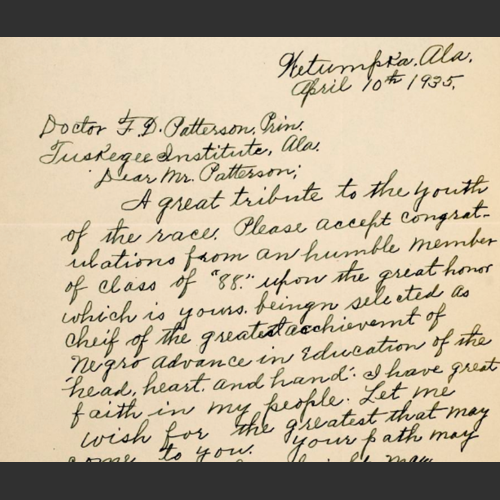 Wetumpka. Ala.
April 10th 1935.
Doctor F. D. Patterson, Prin.
Tuskegee Institute, Ala.
Dear Mr. Patterson;
A great tribute to the youth
of the race. Please accept congrat-
ulations from an humble member
of class of "88." upon the great honor
which is yours. beingn selected as
cheif of the greatest acchievemt of
Negro advance in Education of the
"head, heart. and hand". I have great
faith in my people. Let me
wish for the greatest that may
come to you. your path may